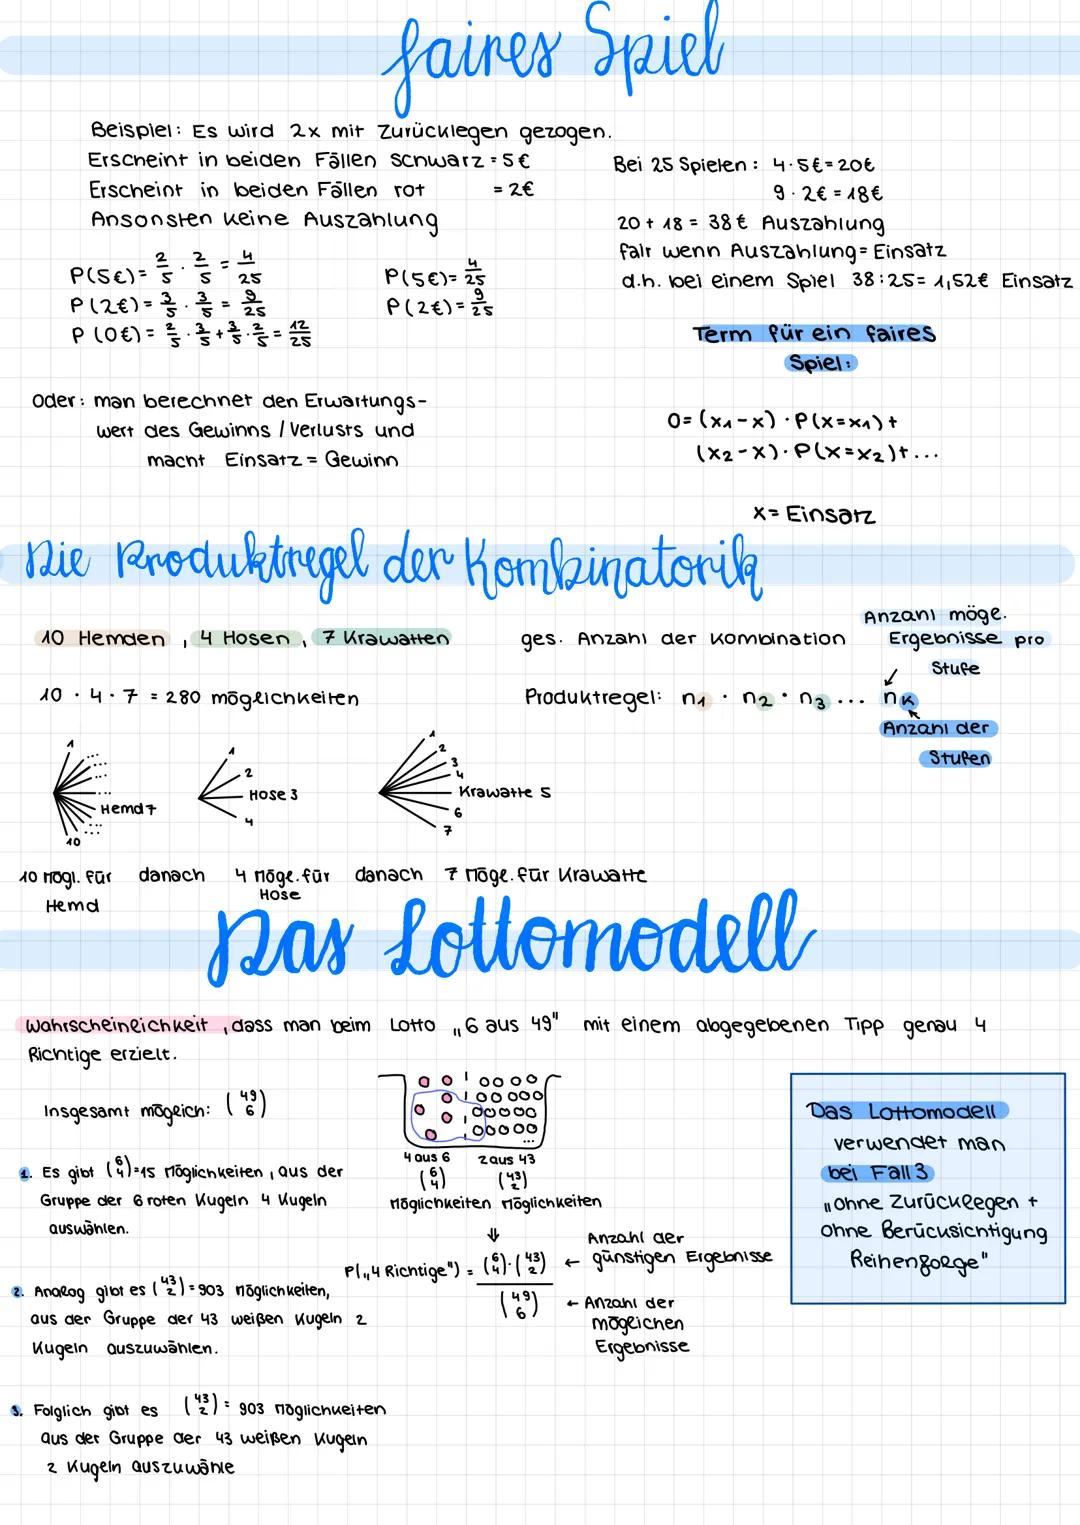 faires Spiel
Beispiel: Es wird 2x mit Zurücklegen gezogen.
Erscheint in beiden Fällen schwarz = 5€
Erscheint in beiden Fällen rot = 2€
Ansonsten keine Auszahlung
P(5€) = 2/5 · 2/5 = 4/25
P(2€) = 3/5 · 3/5 = 9/25
P(0€) = 2/5 · 3/5 + 3/5 · 2/5 = 12/25
P(5€) = 4/25
P(2€) = 9/25
Bei 25 Spielen: 4·5€ = 20€
9·2€ = 18€
20 + 18 = 38€ Auszahlung
fair wenn Auszahlung = Einsatz
d.h. bei einem Spiel 38:25 = 1,52€ Einsatz
Term für ein faires
Spiel:
0 = (x₁-x) · P(x=x₁) +
(x₂-x) · P(x=x₂) + ...
x = Einsatz
Oder: man berechnet den Erwartungs-
wert des Gewinns / Verlusts und
macht Einsatz = Gewinn
Die Produktregel der Kombinatorik
10 Hemden, 4 Hosen, 7 Krawatten
ges. Anzahl der Kombination
Anzahl möge.
Ergebnisse pro
Stufe
10 · 4 · 7 = 280 möglichkeiten
Produktregel: n₁ · n₂ · n₃ ... nₖ
Anzahl der
Stufen
1
...
...
...
Hemd 7
...
10
1
2
Hose 3
4
1
2
3
4
Krawatte 5
6
7
10 mögl. für danach 4 Möge. für danach 7 Möge. für Krawatte
Hemd Hose
Das Lottomodell
Wahrscheinlichkeit, dass man beim Lotto „6 aus 49" mit einem abgegebenen Tipp genau 4
Richtige erzielt.
Insgesamt möglich: (49 6)
1. Es gibt (6 4) = 15 Möglichkeiten, aus der
Gruppe der 6 roten Kugeln 4 Kugeln
auswählen.
2. Analog gibt es (43 2) = 903 Möglichkeiten,
aus der Gruppe der 43 weißen Kugeln 2
Kugeln auszuwählen.
3. Folglich gibt es (43 2) = 903 Möglichkeiten
aus der Gruppe der 43 weißen Kugeln
2 Kugeln auszuwähle
...
4 aus 6 2 aus 43
(6 4) (43 2)
Möglichkeiten Möglichkeiten
⇓
P(„4 Richtige") = (6 4)·(43 2) / (49 6)
← Anzahl der
günstigen Ergebnisse
← Anzahl der
möglichen
Ergebnisse
Das Lottomodell
verwendet man
bei Fall 3
„ohne Zurücklegen +
ohne Berücksichtigung
Reihenfolge"